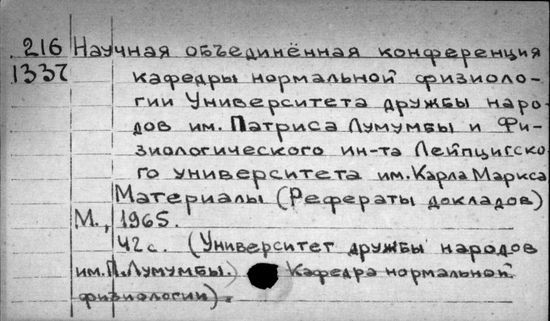 216 Научная объединённая конференция
1337 кафедры нормальной физиоло-
гии Университета дружбы наро-
дов им. Патриса Лумумбы и Фи-
зиологического ин-та Лейпцигско-
го университета им. Карла Маркса
Материалы (Рефераты докладов)
М., 1965.
42 с. (Университет дружбы народов
им. П. Лумумбы.) Кафедра нормальной
физиологии).